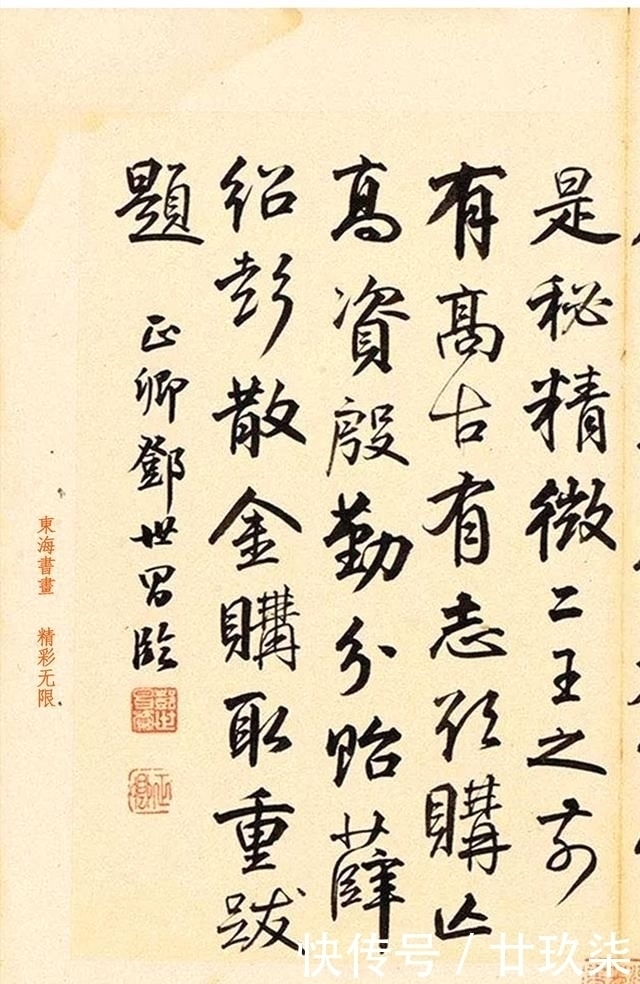 是秘精微二王之前
有高古有志欲購亾
高資殷勤分貽薛
紹彭散金購取重跋
題
正卿鄧世昌臨
正卿
東海書畫 精彩无限
快传号 / 廿玖柒